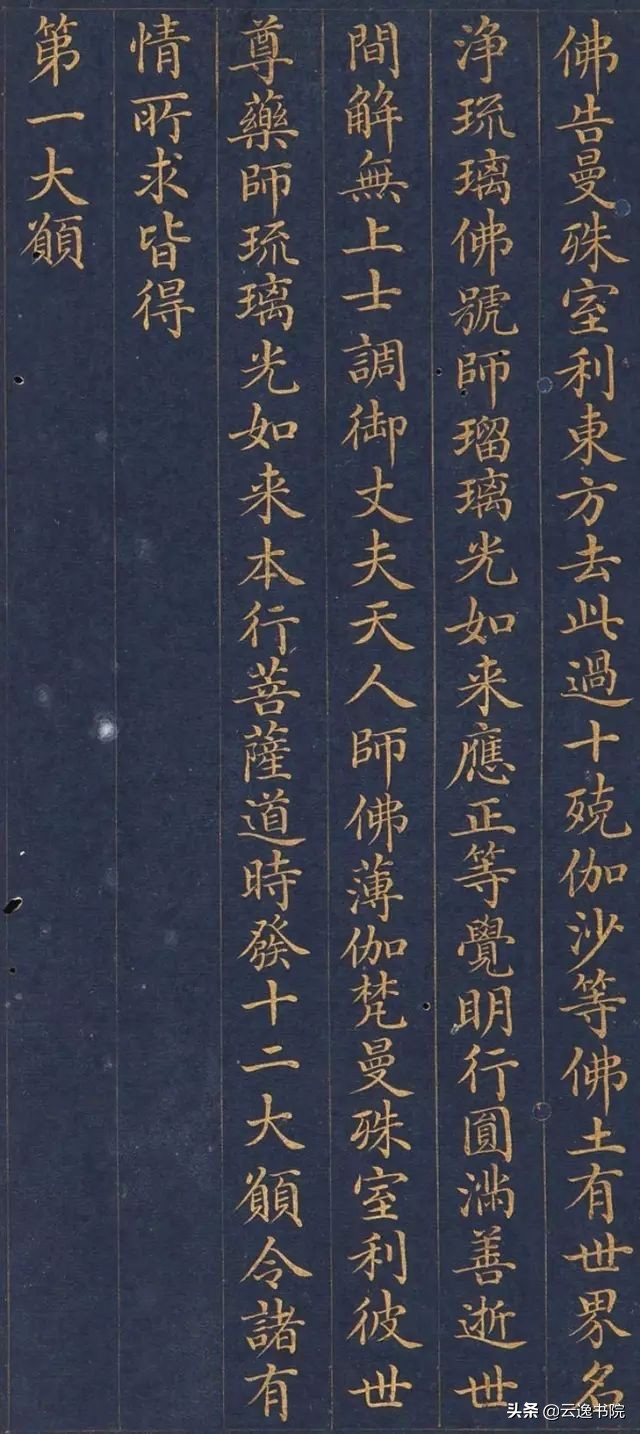 佛告曼殊室利東方去此過十殑伽沙等佛土有世界名
淨琉璃佛號師瑠璃光如来應正等覺明行圎滿善逝世
間解無上士調御丈夫天人師佛薄伽梵曼殊室利彼世
尊藥師琉璃光如来本行菩薩道時發十二大願令諸有
情所求皆得
第一大願
头条 @云逸书院